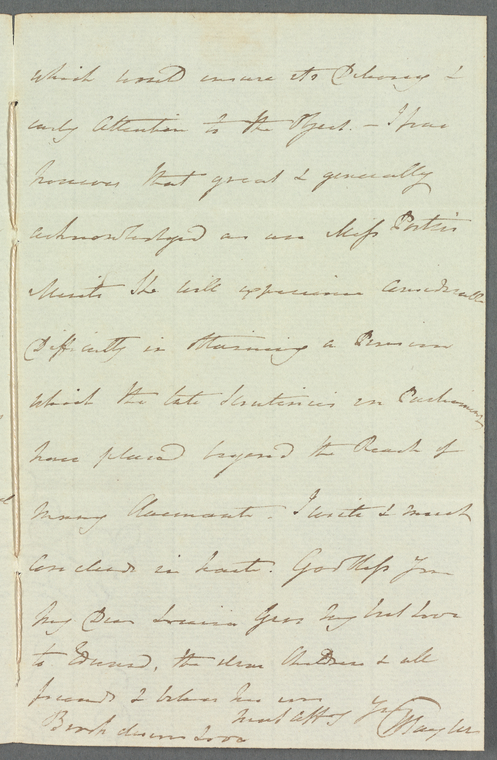 which would insure its Delivery &
early Attention to the Object. – I fear
however that great & generally
acknowledged as are Miss Porter's
Merits she will experience considerable
Difficulty in obtaining a Pension
which the late Scrutinies in Parliament
have placed beyond the Reach of
many Claimants. I write & must
conclude in haste. God bless you
My Dear Louisa Give my best Love
to Edward, the dear Children & all
friends & believe me ever
most aff'y Yrs